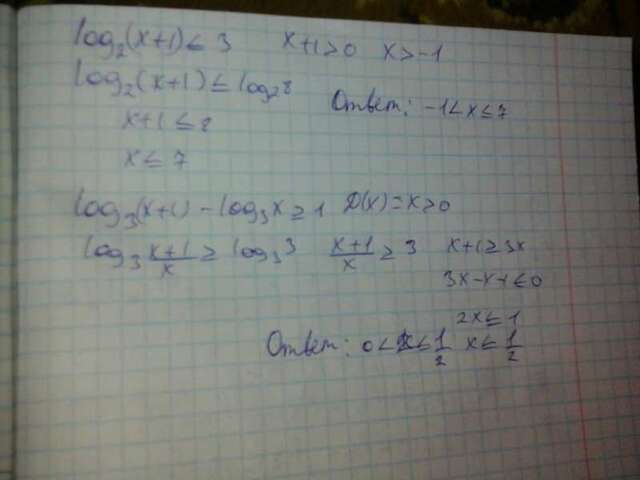 log₂(x+1) ≤ 3 x+1>0 x>-1
log₂(x+1) ≤ log₂8
x+1 ≤ 8 Ответ: -1<x≤7
x ≤ 7
log₃(x+1) - log₃x ≥ 1 D(x)=x>0
log₃ (x+1)/x ≥ log₃3 (x+1)/x ≥ 3 x+1≥3x
3x-x-1≤0
2x≤1
Ответ: 0<x≤1/2 x≤1/2